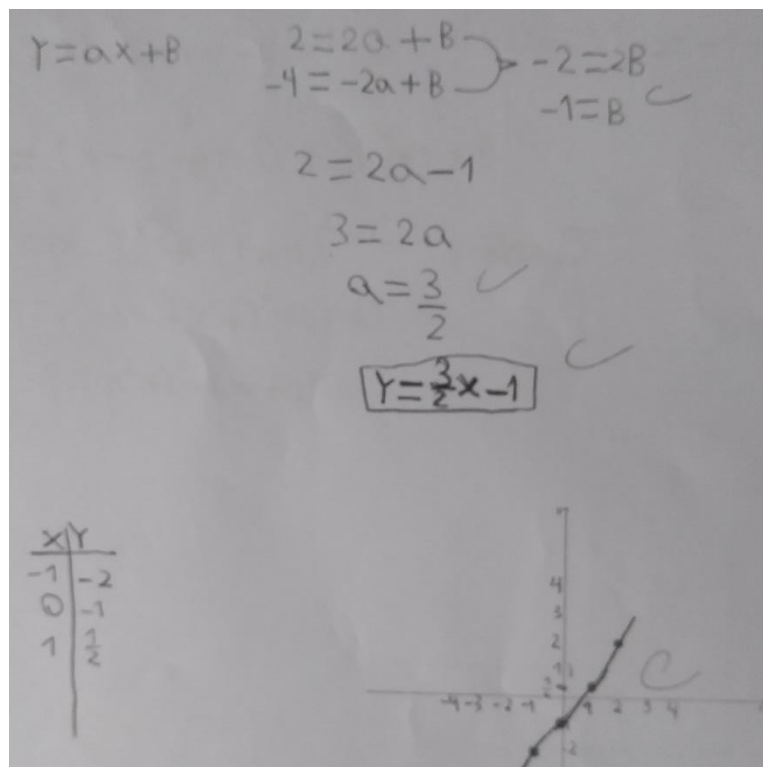 Y=ax+B
2=2a+B
-4=-2a+B
-2=2B
-1=B
2=2a-1
3=2a
a=3/2
Y=3/2x-1
X Y
-1 -2
0 -1
1 1/2
4
3
2
1
-4 -3 -2 -1 1 2 3 4
-2